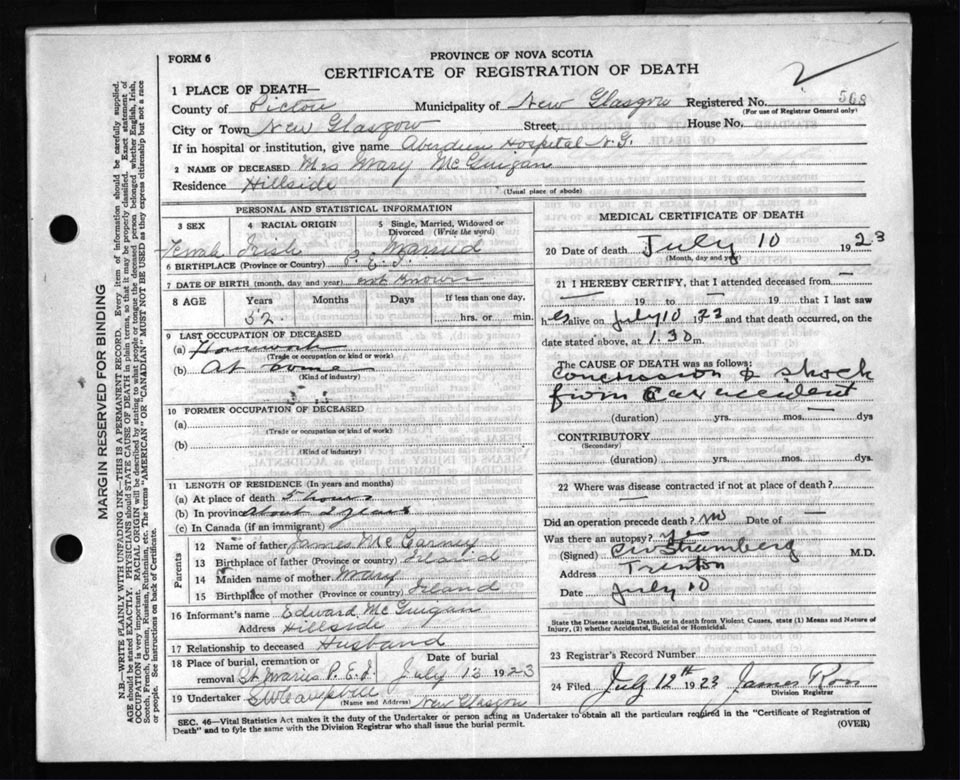 FORM 6
PROVINCE OF NOVA SCOTIA
CERTIFICATE OF REGISTRATION OF DEATH
2
1 PLACE OF DEATH—
County of Pictou Municipality of New Glasgow Registered No. 568
(For use of Registrar General only)
City or Town New Glasgow Street, House No.
If in hospital or institution, give name Aberdeen Hospital N.G.
2 NAME OF DECEASED Mrs Mary McGuigan
Residence Hillside
(Usual place of abode)
PERSONAL AND STATISTICAL INFORMATION
3 SEX 4 RACIAL ORIGIN 5 Single, Married, Widowed or Divorced (Write the word)
Irish Married
6 BIRTHPLACE (Province or Country) P.E.I.
7 DATE OF BIRTH (month, day and year) not known
8 AGE Years Months Days If less than one day,
52 hrs. or min.
9 LAST OCCUPATION OF DECEASED
(a) Housework
(Trade or occupation or kind or work)
(b) At home
(Kind of industry)
10 FORMER OCCUPATION OF DECEASED
(a)
(Trade or occupation or kind of work)
(b)
(Kind of industry)
11 LENGTH OF RESIDENCE (In years and months)
(a) At place of death 5 hours
(b) In province About 2 years
(c) In Canada (if an immigrant)
Parents
12 Name of father James McCarney
13 Birthplace of father (Province or country) Ireland
14 Maiden name of mother Mary
15 Birthplace of mother (Province or country) Irland
16 Informant's name Edward McGuigan
Address Hillside
17 Relationship to deceased Husband
18 Place of burial, cremation or removal St Maries P.E.I. Date of burial July 12 1923
19 Undertaker (Name and Address) New Glasgow
MEDICAL CERTIFICATE OF DEATH
20 Date of death July 10 1923
(Month, day and year)
21 I HEREBY CERTIFY, that I attended deceased from —
19 to — 19 that I last saw
h es alive on July 10 1923 and that death occurred, on
date stated above, at 1:30 m.
The CAUSE OF DEATH was as follows:
Concussion & shock
from Car accident
(duration) yrs. mos. — dys
CONTRIBUTORY
(Secondary)
(duration) yrs. mos. dys.
22 Where was disease contracted if not at place of death?
—
Did an operation precede death? no Date of —
Was there an autopsy? yes
(Signed) M.D.
Address Trenton
Date July 10
State the Disease causing Death, or in death from Violent Causes, state (1) Means and Nature of
Injury, (2) whether Accidental, Suicidal or Homicidal.
23 Registrar's Record Number
24 Filed July 12th 1923 James Ross
Division Registrar
SEC. 46—Vital Statistics Act makes it the duty of the Undertaker or person acting as Undertaker to obtain all the particulars required in the "Certificate of Registration of
Death" and to fyle the same with the Division Registrar who shall issue the burial permit. (OVER)
MARGIN RESERVED FOR BINDING
N.B.—WRITE PLAINLY WITH UNFADING INK—THIS IS A PERMANENT RECORD. Every item of information should be carefully supplied.
AGE should be stated EXACTLY. PHYSICIANS should STATE CAUSE OF DEATH in plain terms, so that it may be properly classified. Exact statement of
OCCUPATION is very important. RACIAL ORIGIN will be described by stating to what people or tongue the deceased person belonged whether English, Irish,
Scotch, French, German, Russian, Ruthenian, etc. The terms "AMERICAN" OR "CANADIAN" MUST NOT BE USED as they express citizenship but not a race
or people. See instructions on back of Certificate.